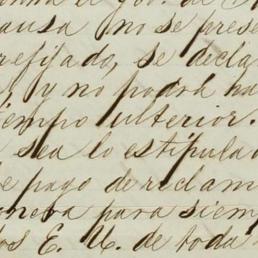 causa no se prese
refijado, se decla
y no podrá ha
iempo ulterior.
sea lo estipula
e pago de reclam
anera para siem
os E. U. de toda